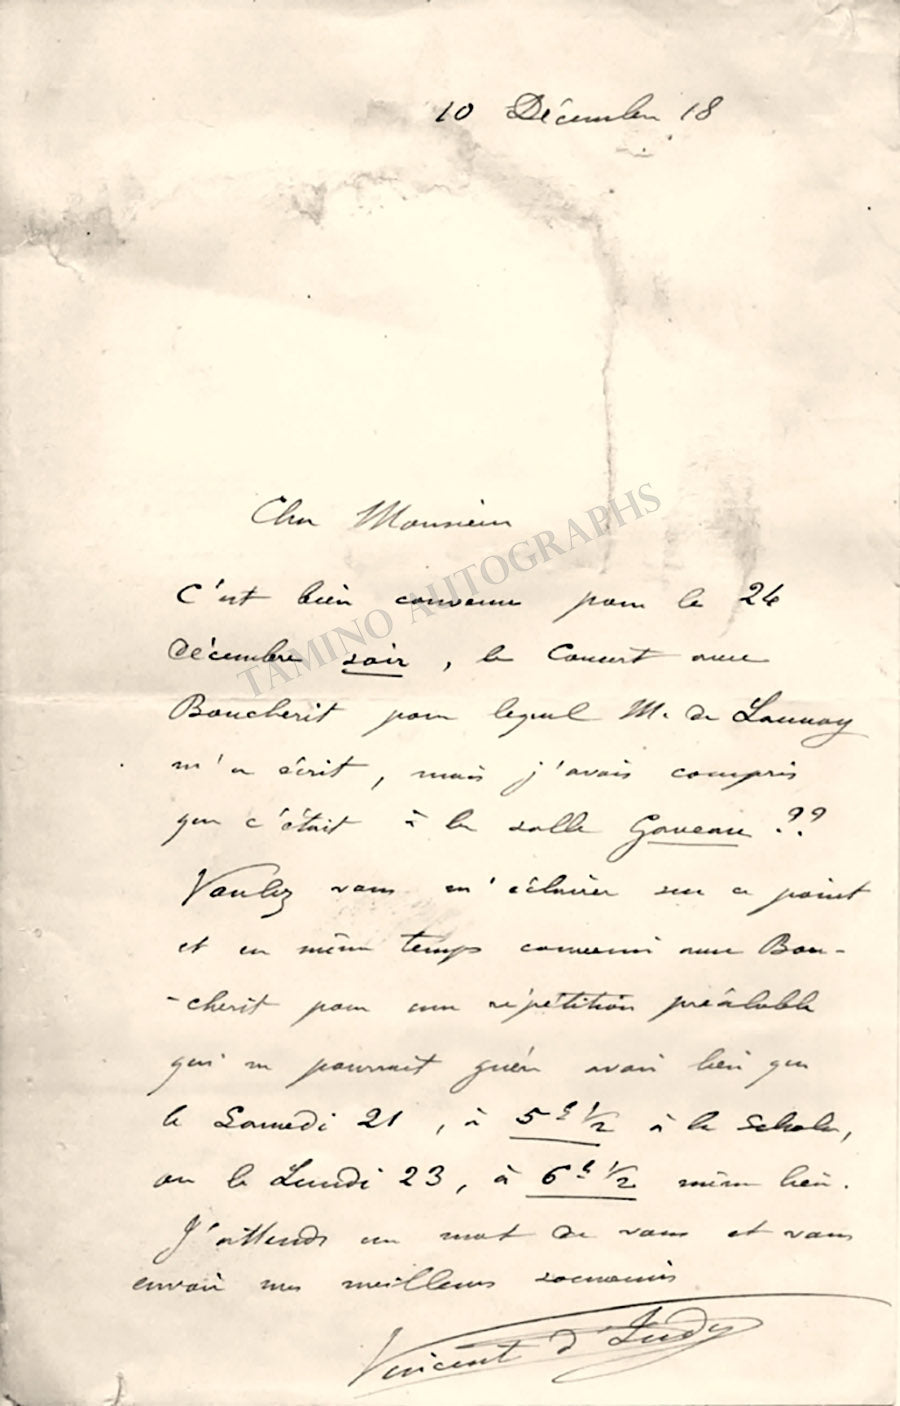 10 Décembre 18
Cher Monsieur
TAMINO AUTOGRAPHS
C'est bien convenu pour le 24
Décembre soir, le Concert avec
Boucherit pour lequel M. de Launay
m'a écrit, mais j'avais compris
que c'était à la salle Gaveau ??
Voulez vous m'éclairer sur ce point
et en même temps convenir avec Bou-
-cherit pour une répétition préalable
qui ne pourrait guère avoir lieu que
le Samedi 21, à 5h 1/2 à la Schola,
ou le Lundi 23, à 6h 1/2 même lieu.
J'attends un mot de vous et vous
envoie mes meilleurs souvenirs
Vincent d'Indy